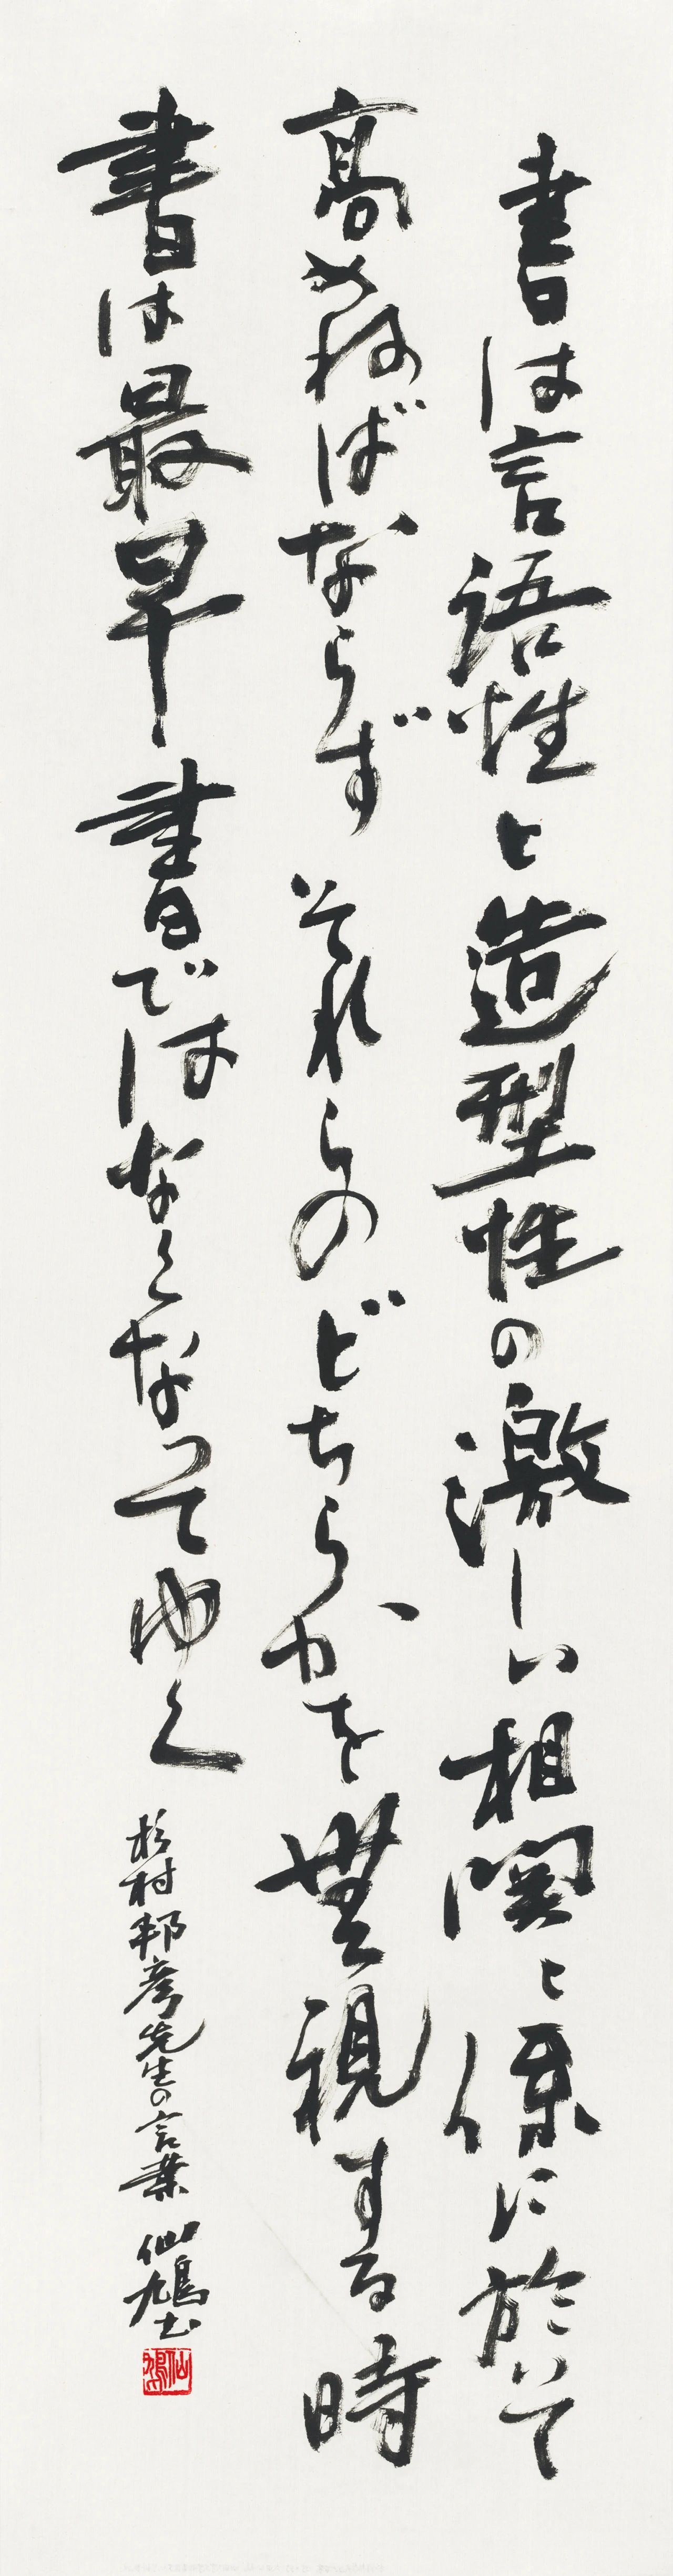 書は言語性と造型性の激しい相関々係に於いて
高めねばならず それらのどちらかを無視する時
書は最早 書ではなくなってゆく
杉村邦彦先生の言葉 仙鳩書
仙鳩